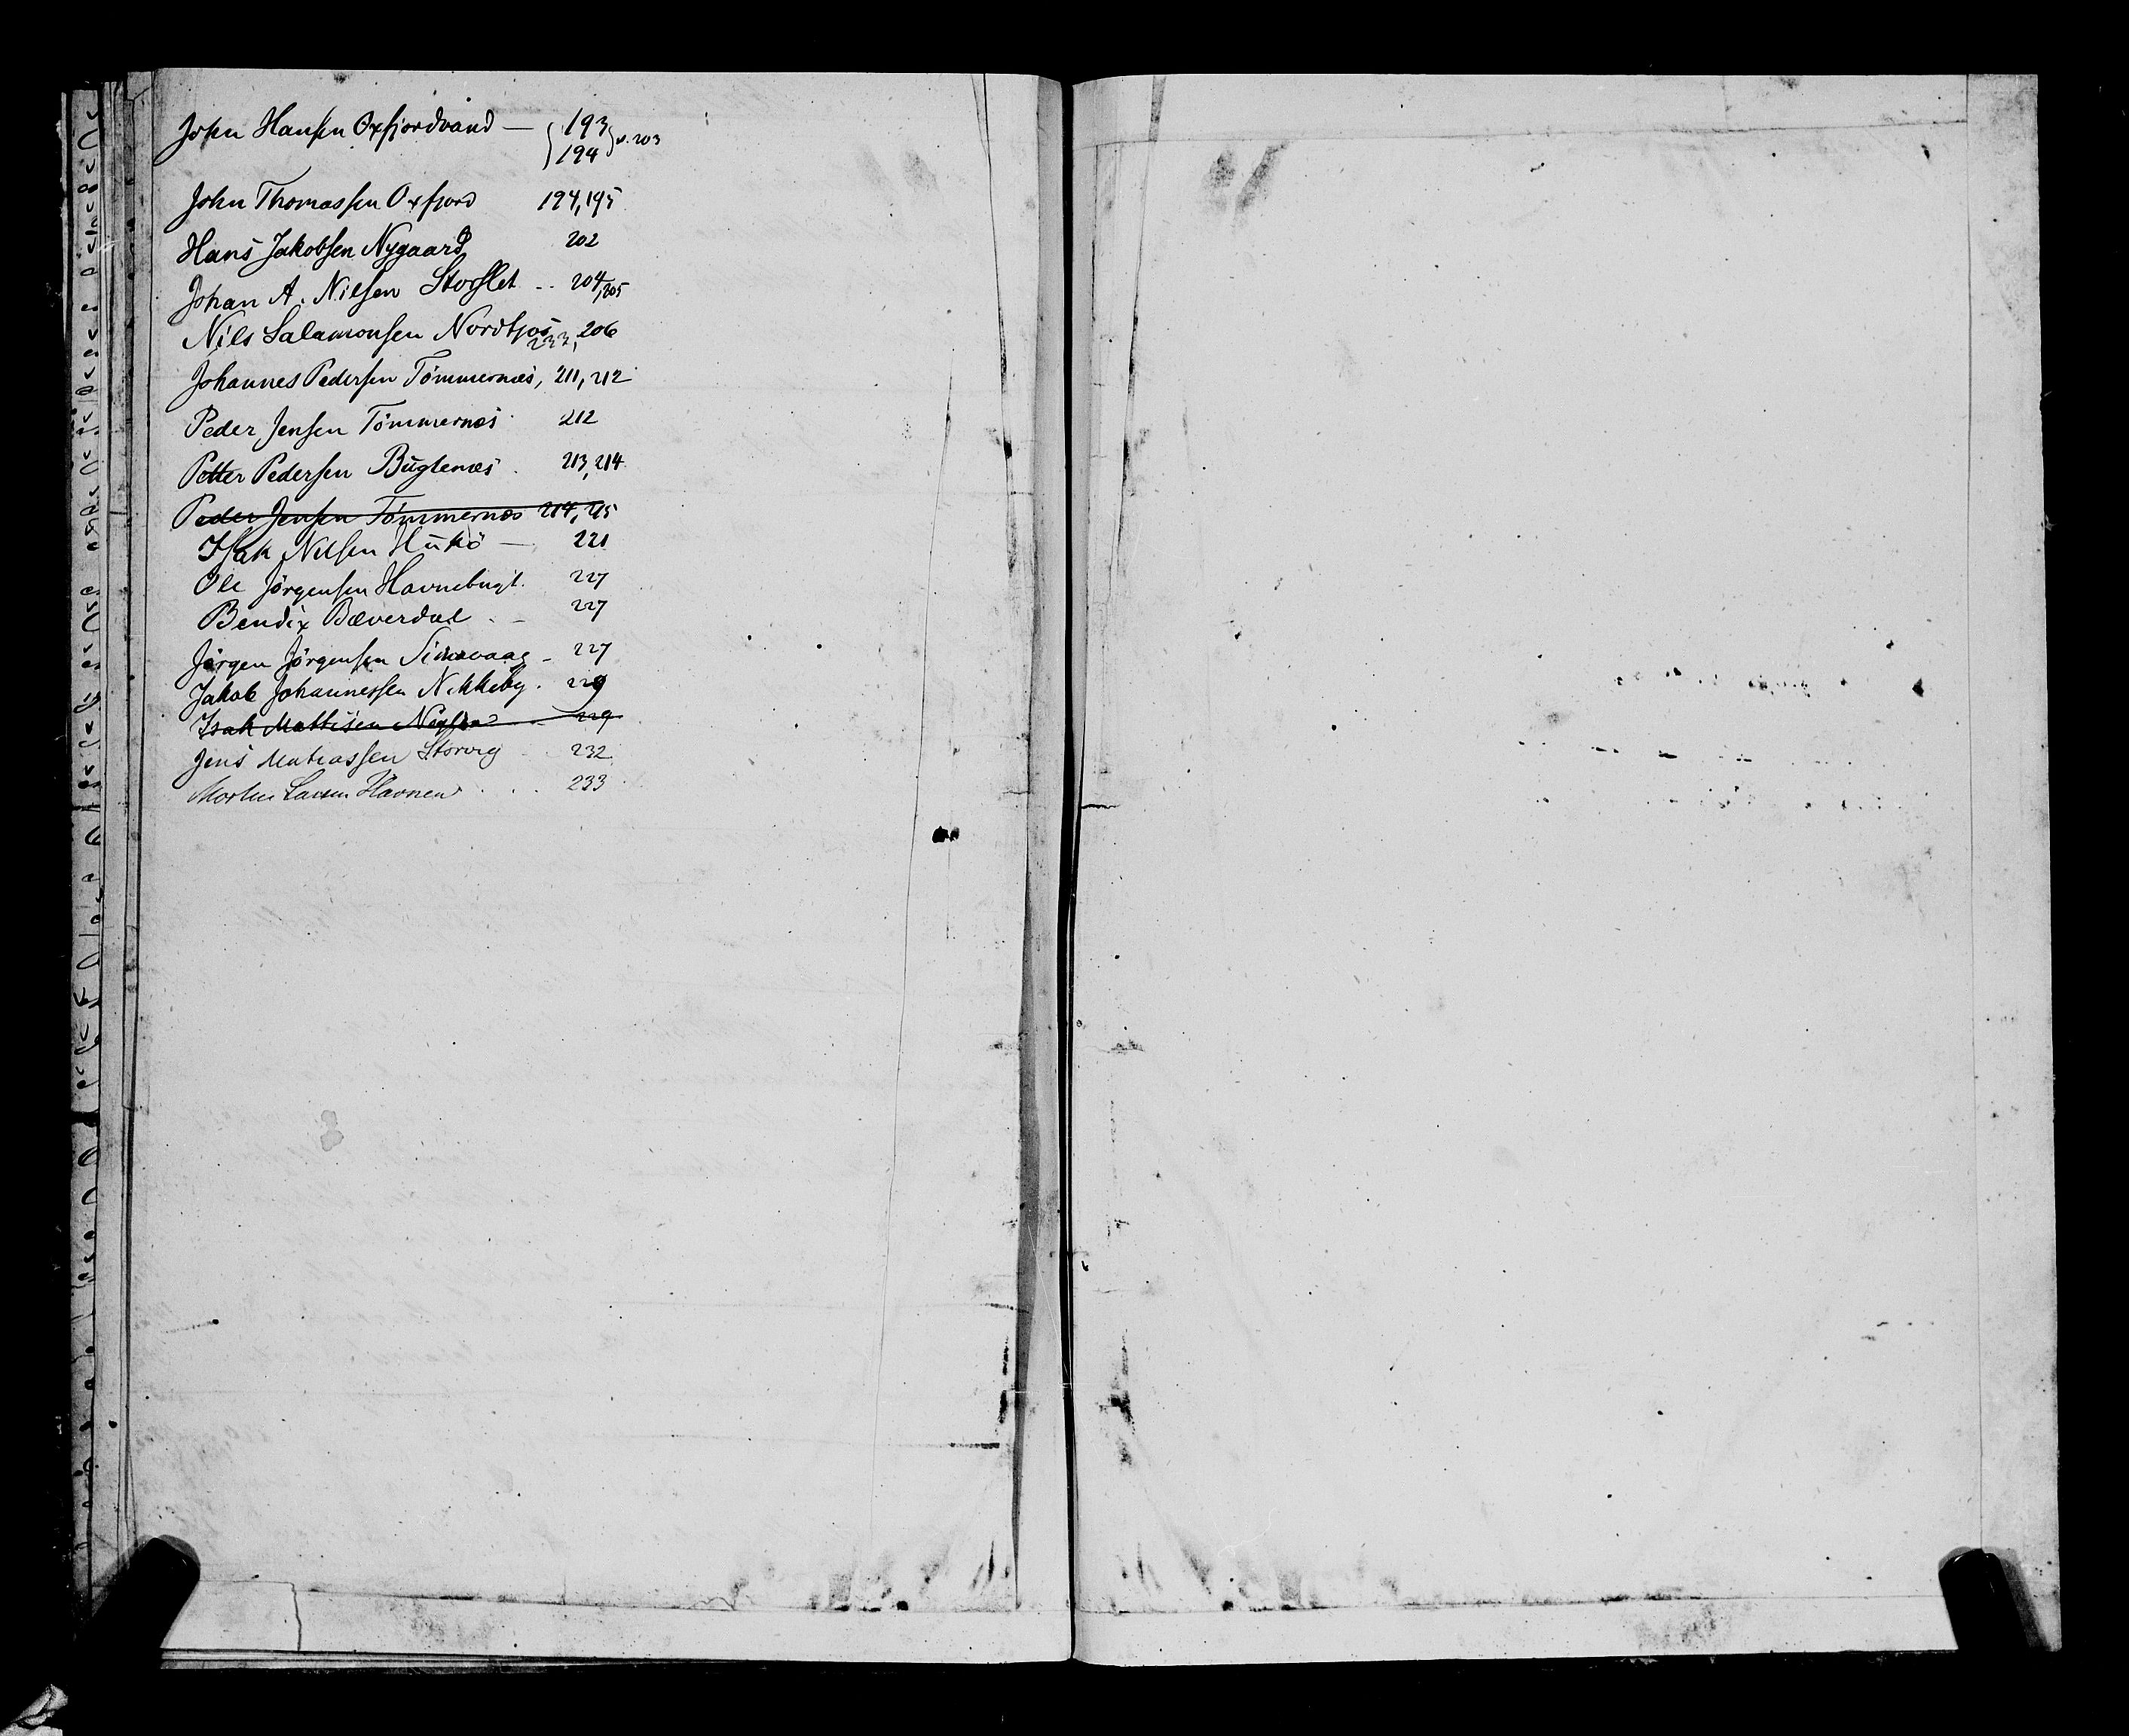 John Hansen Oxfjordvand — 193
194 } o. 203
John Thomassen Oxfjord 194, 195
Hans Jakobsen Nygaard 202
Johan A. Nilsen Storslet .. 204, 205
Nils Salamonsen Nordkjos 206
233,
Johannes Pedersen Tömmernæs, 211, 212
Peder Jensen Tömmernæs 212
Petter Pedersen Bugtenæs . 213, 214
Peder Jensen Tömmernæs 214, 215
Isak Nilsen Hukö — 221
Ole Jörgensen Havnebugt. 227
Bendix Bæverdal . – 227
Jörgen Jörgensen 227
Jakob Johannessen Nikkeby . 229
Isak Mattisen 229
Jens Matiassen Storvig 232
Morten Larsen Havnen . . . 233